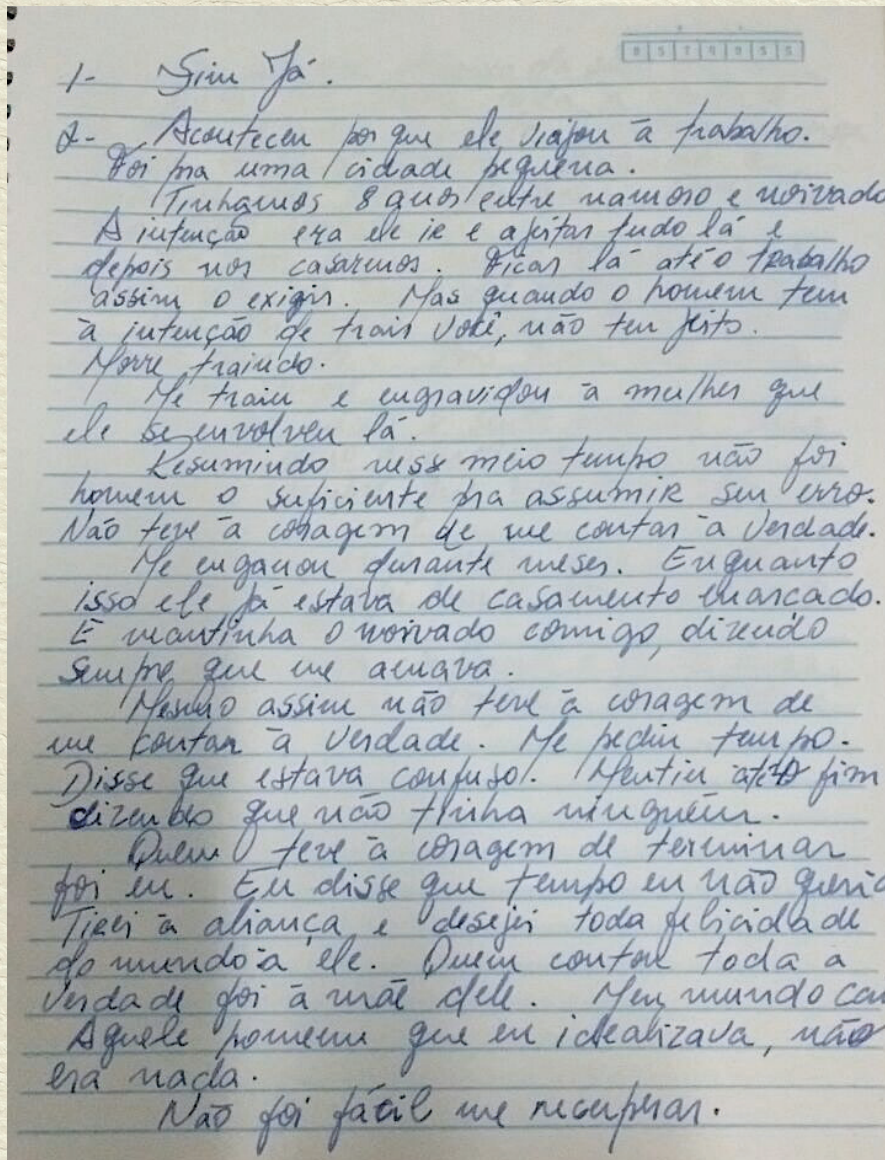 0 5 2 9 9 9 5 5
1- Sim Já.
2- Aconteceu por que ele viajou à trabalho.
Foi pra uma cidade pequena.
Tinhamos 8 anos entre namoro e noivado
A intenção era ele ir e ajeitar tudo lá e
depois nos casarmos. Ficar lá até o trabalho
assim o exigir. Mas quando o homem tem
à intenção de trair você, não tem jeito.
Morre traindo.
Me traiu e engravidou à mulher que
ele se envolveu lá.
Resumindo nesse meio tempo não foi
homem o suficiente pra assumir seu erro.
Não teve à coragem de me contar à verdade.
Me enganou durante meses. Enquanto
isso ele já estava de casamento marcado.
E mantinha o noivado comigo, dizendo
sempre que me amava.
Mesmo assim não teve à coragem de
me contar à verdade. Me pediu tempo.
Disse que estava confuso. Mentiu até o fim
dizendo que não tinha ninguém.
Quem teve à coragem de terminar
foi eu. Eu disse que tempo eu não queria
Tirei à aliança e desejei toda felicidade
do mundo à ele. Quem contou toda a
verdade foi à mãe dele. Meu mundo cai
Aquele homem que eu idealizava, não
era nada.
Não foi fácil me recuperar.